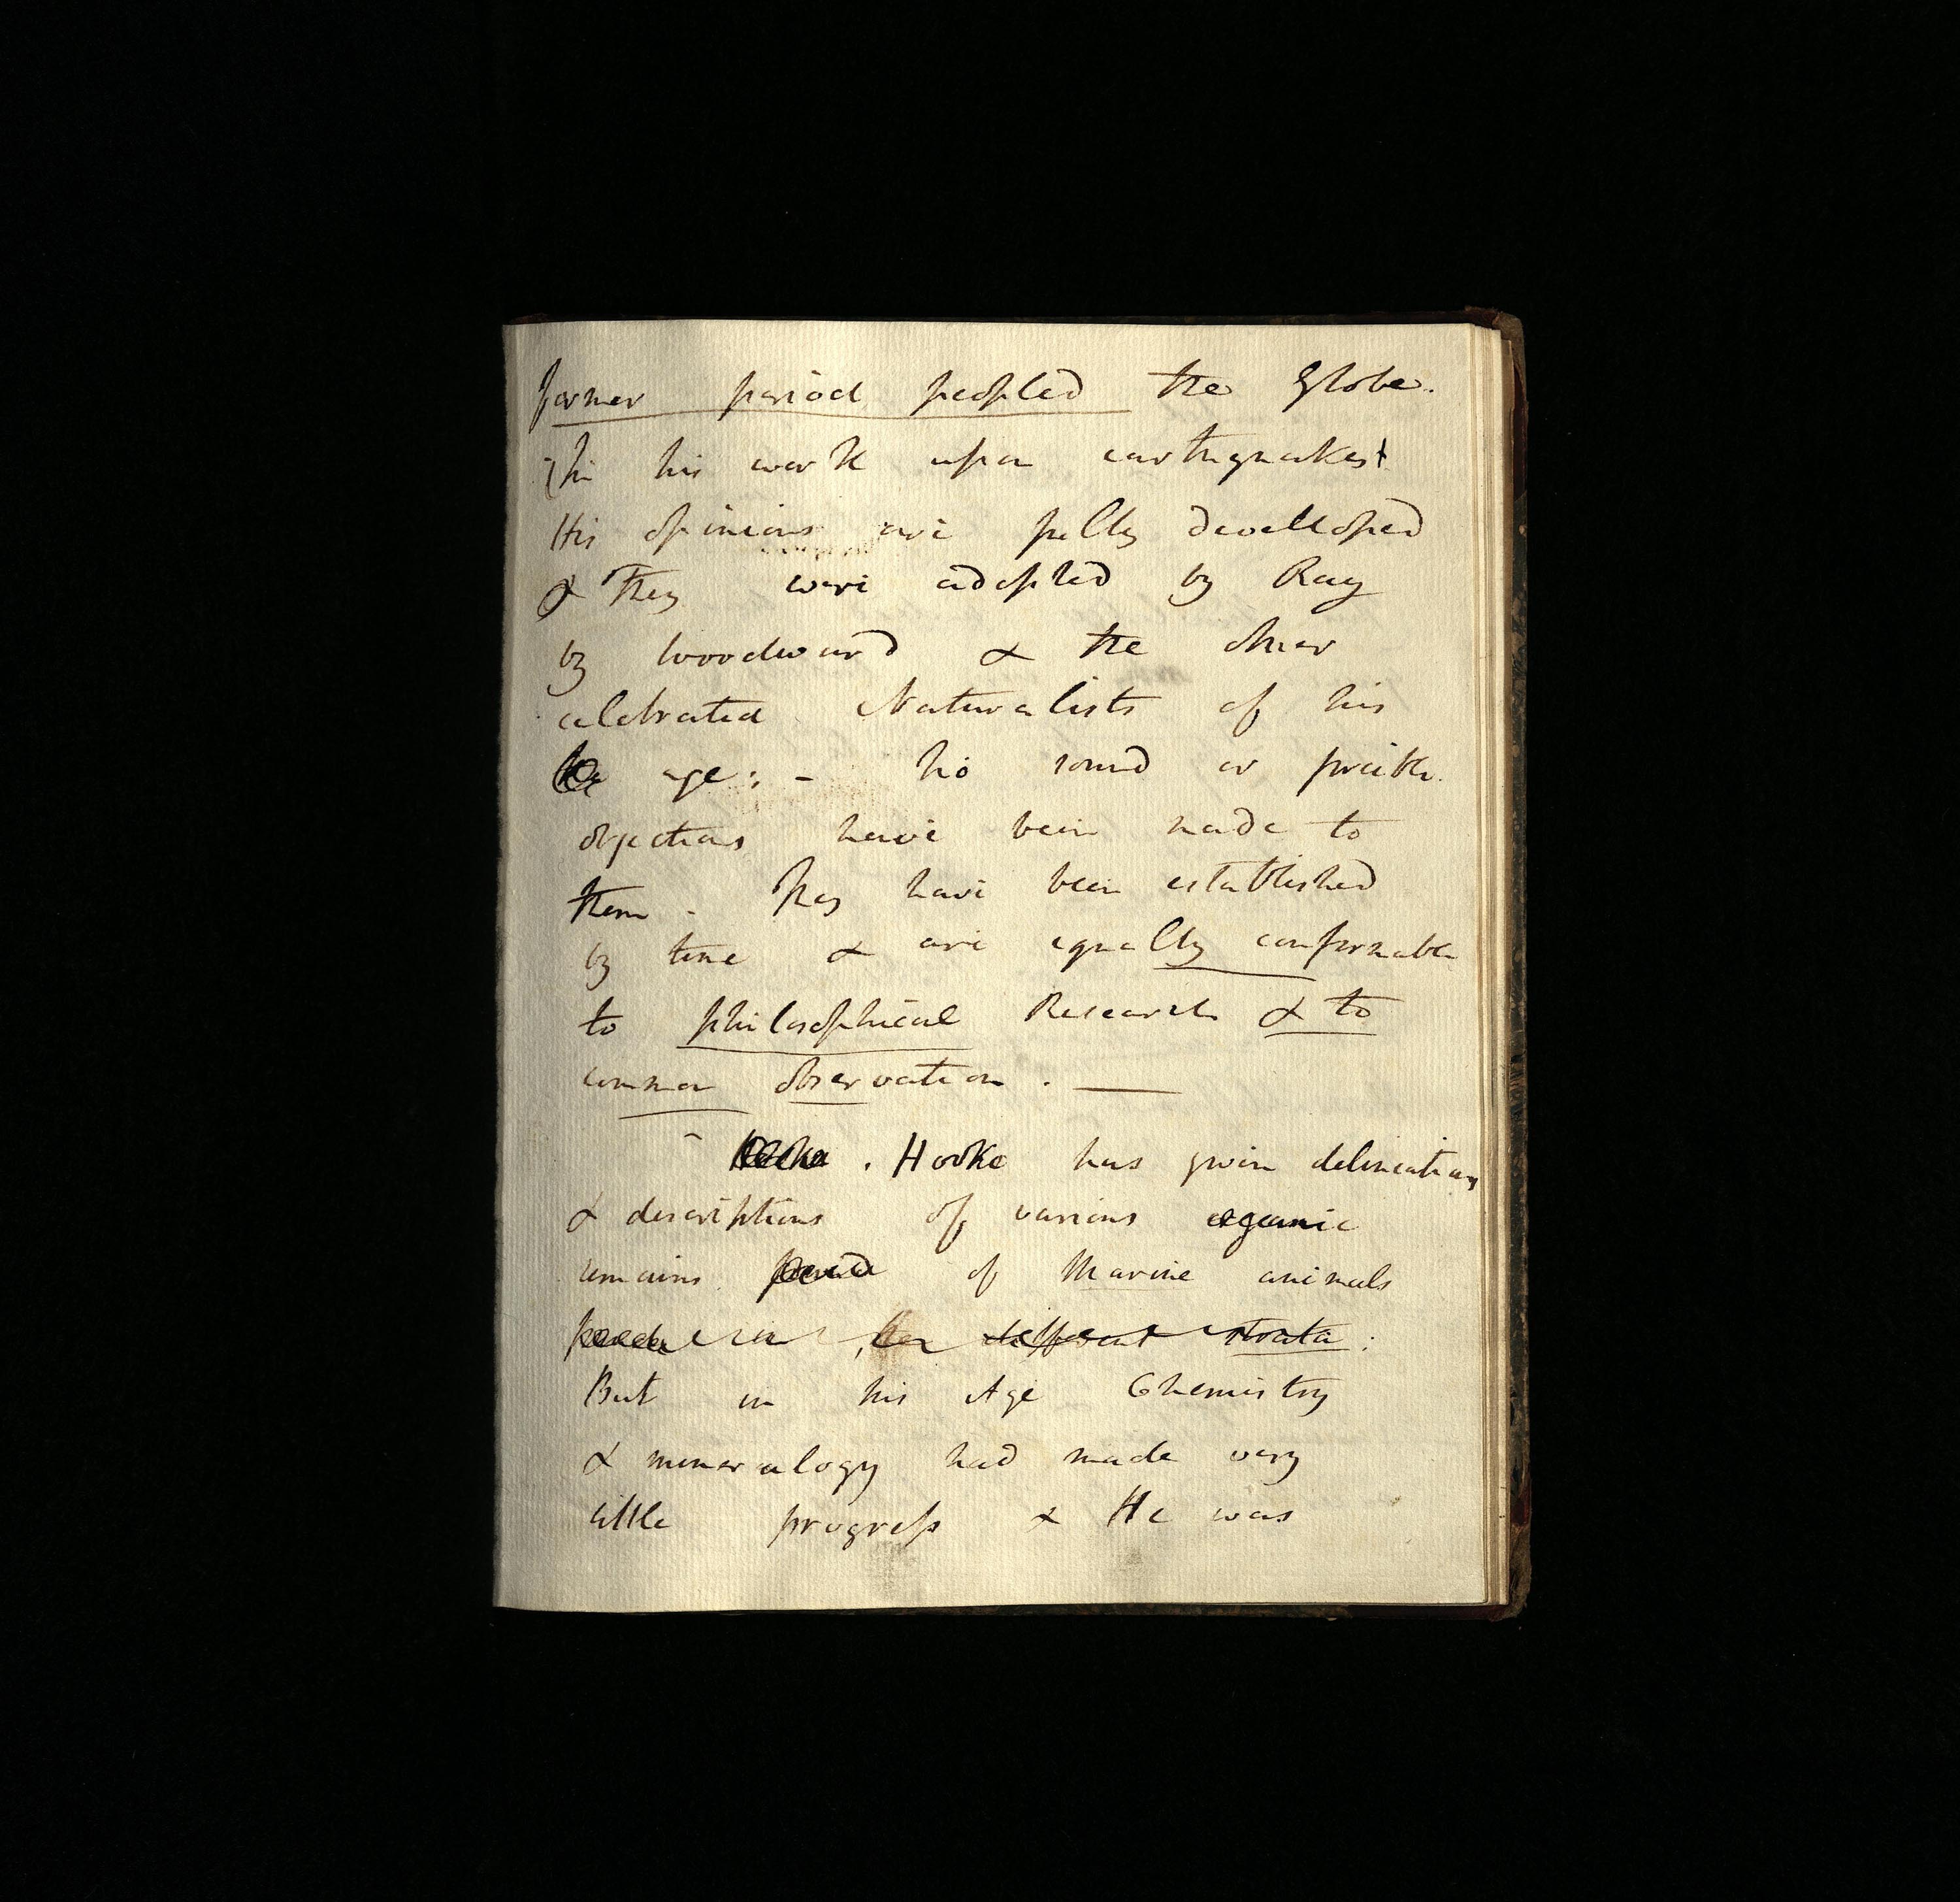 former period peopled the Globe.
In his work upon earthquakes
His opinions are fully developed
& they were adopted by Ray
by Woodward & the other
celebrated Naturalists of his
age: - No sound or
objections have been made to
them - They have been established
by time & are equally conformable
to philosophical Research & to
common observation. —
Hooke has given delineations
& descriptions of various organic
remains found of Marine animals
found in the different strata:
But in his Age Chemistry
& mineralogy had made very
little progress & He was